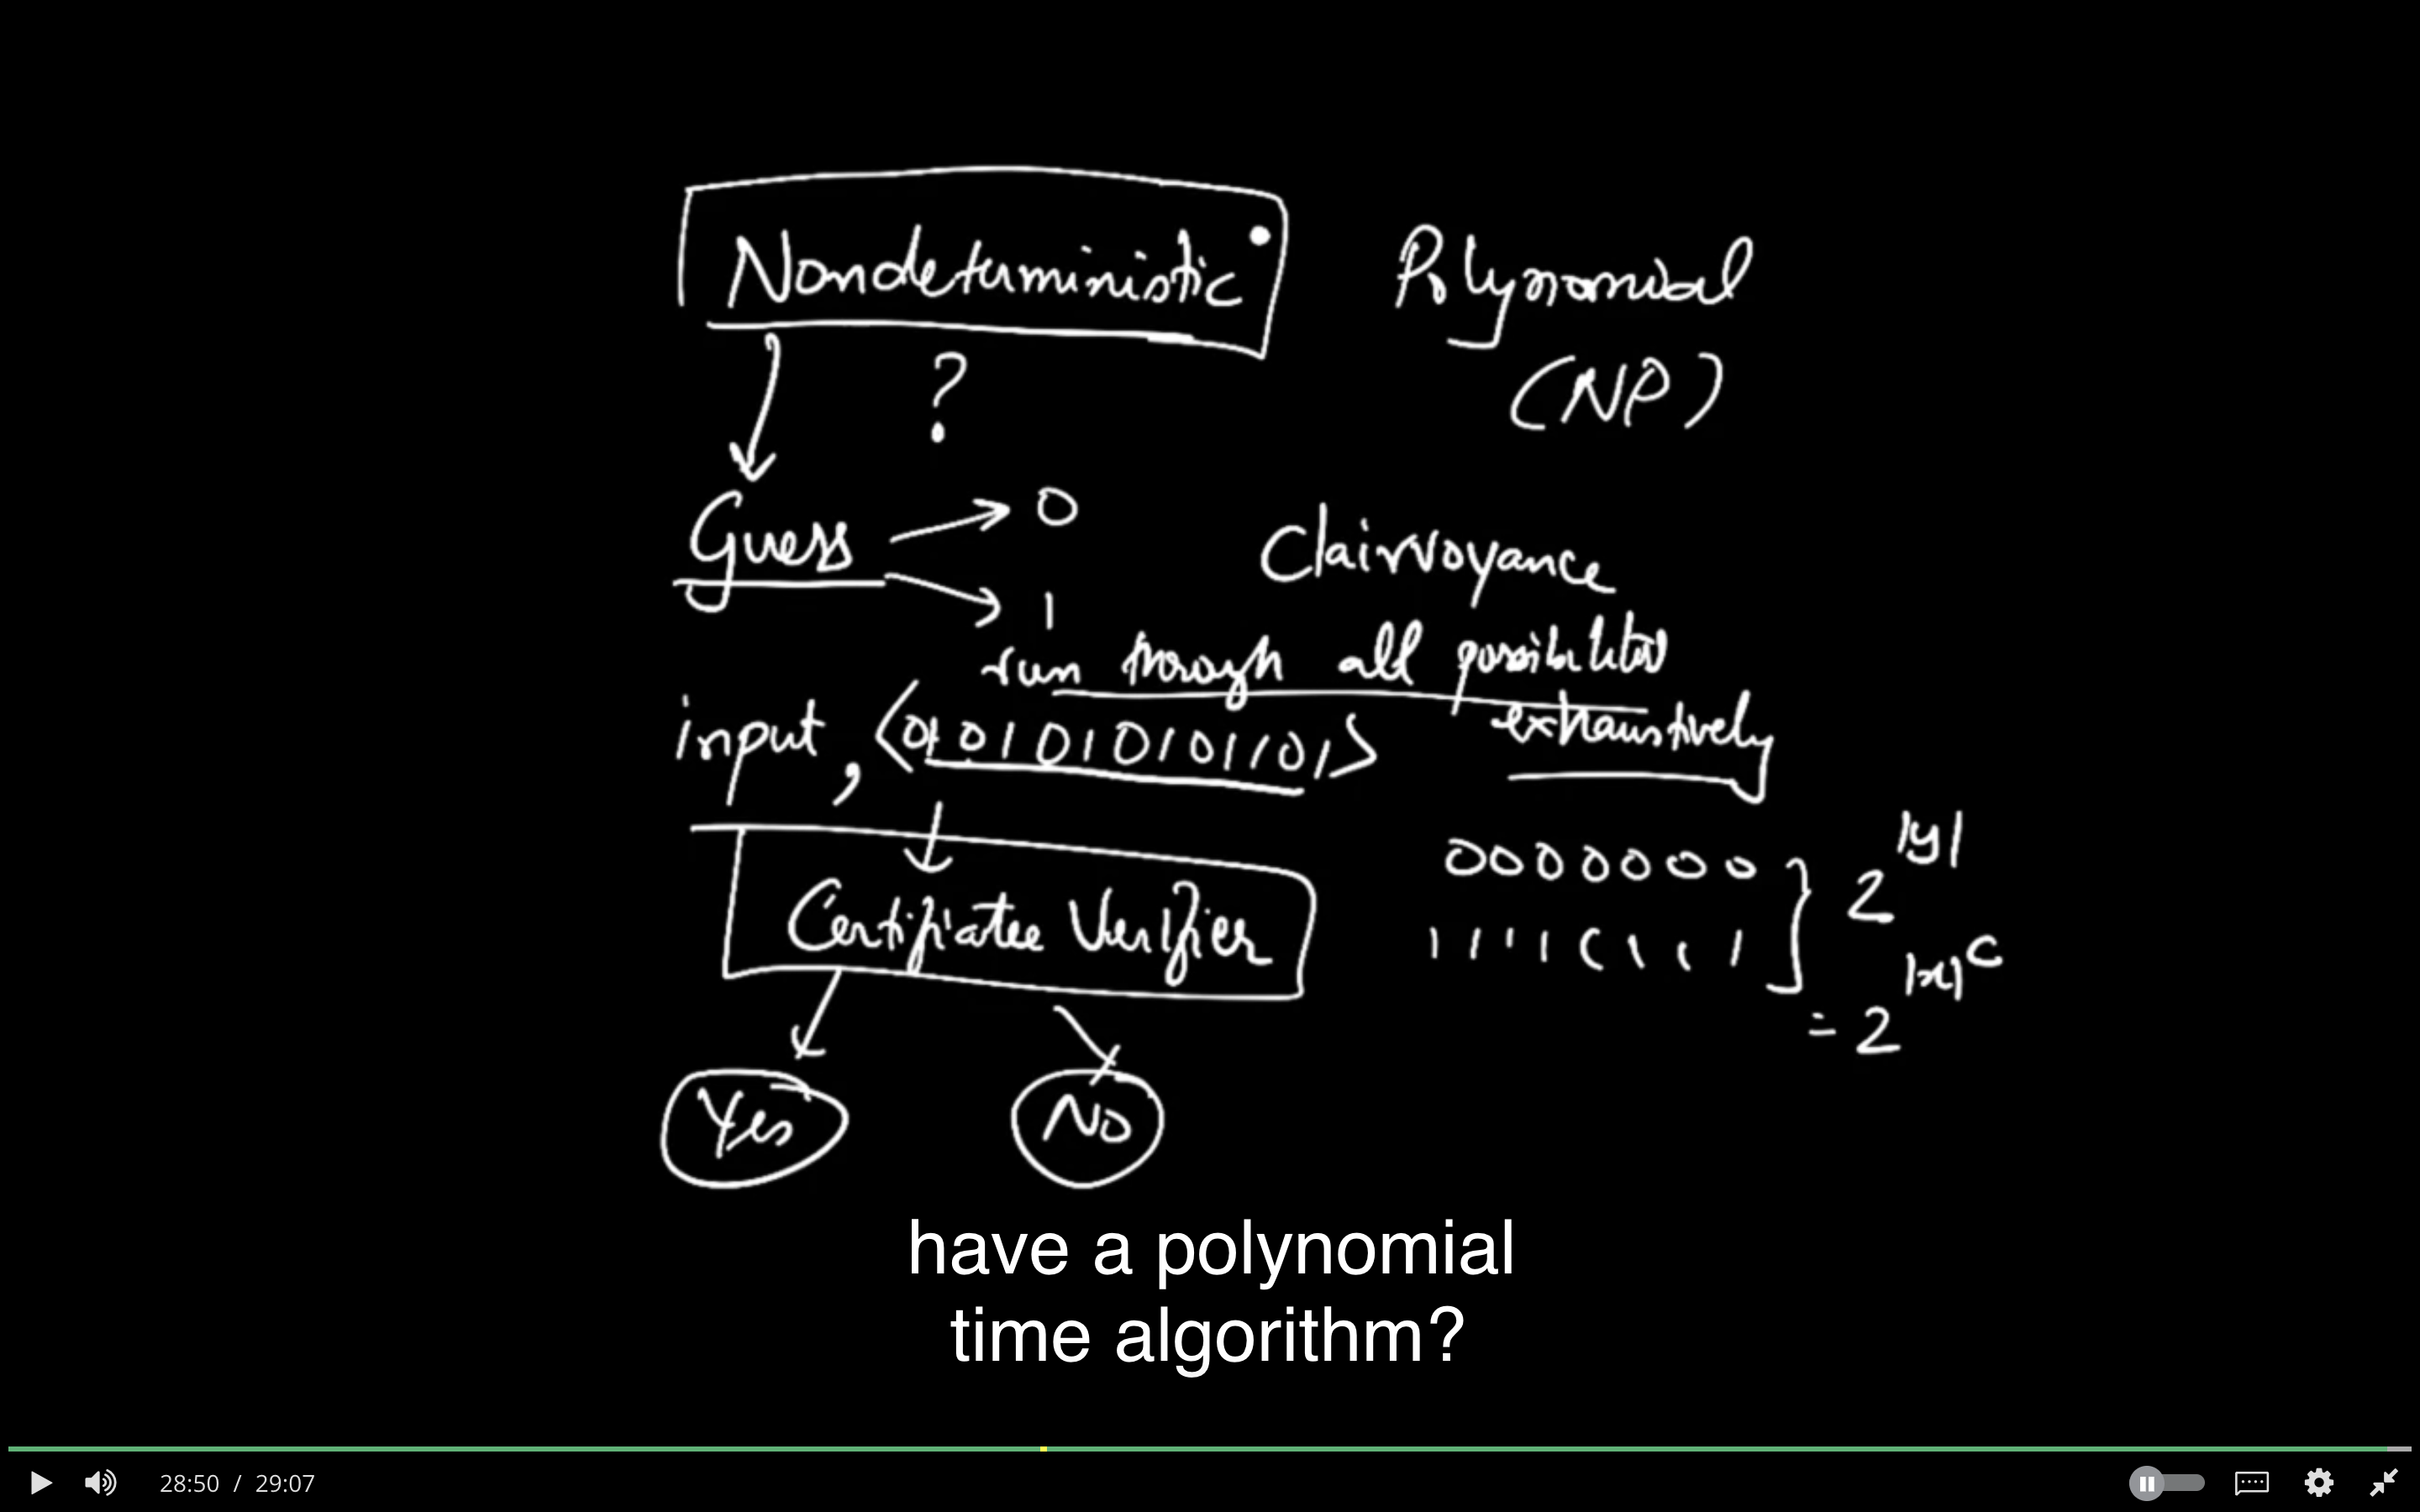 Nondeterministic Polynomial
? (NP)
Guess → 0
→ 1
Clairvoyance
run through all possibilities
exhaustively
input, <0101010101101>
Certificate Verifier
0000000 } 2^|y|
11111111
= 2^|x|^c
Yes No
have a polynomial
time algorithm?
28:50 / 29:07